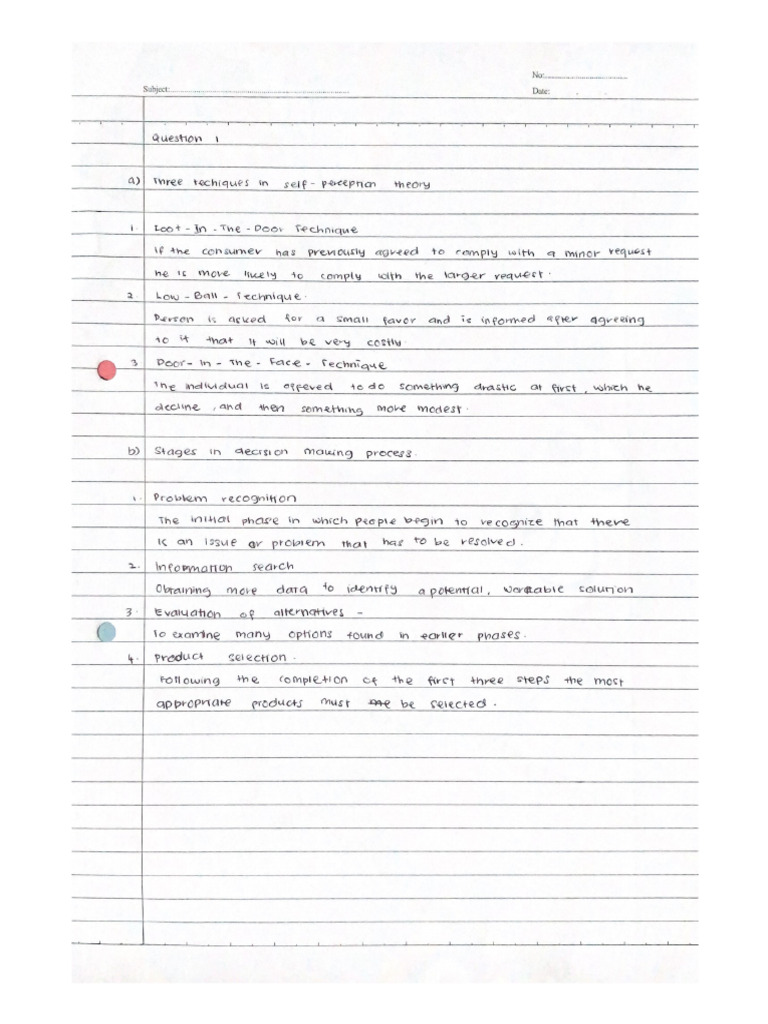 No:
Subject:
Date:
Question 1
a) Three techiques in self-perception theory
1. Loot-In-The-Door Technique
If the consumer has previously agreed to comply with a minor request
he is more likely to comply with the larger request.
2. Low-Ball-Technique.
Person is asked for a small favor and is informed after agreeing
to it that it will be very costly
3 Door-In-The-Face-Technique
The individual is offered to do something drastic at first, which he
decline, and then something more modest.
b) Stages in decision making process.
1. Problem recognition
The initial phase in which people begin to recognize that there
is an issue or problem that has to be resolved.
2. Information search
Obtaining more data to identify a potential, workable solution
3. Evaluation of alternatives -
To examine many options found in earlier phases.
4. Product selection.
Following the completion of the first three steps the most
appropriate products must be selected.